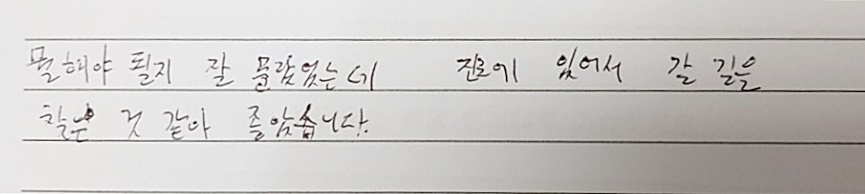 뭘 해야 될지 잘 몰랐었는데 진로에 있어서 갈 길을
찾은 것 같아 좋았습니다.